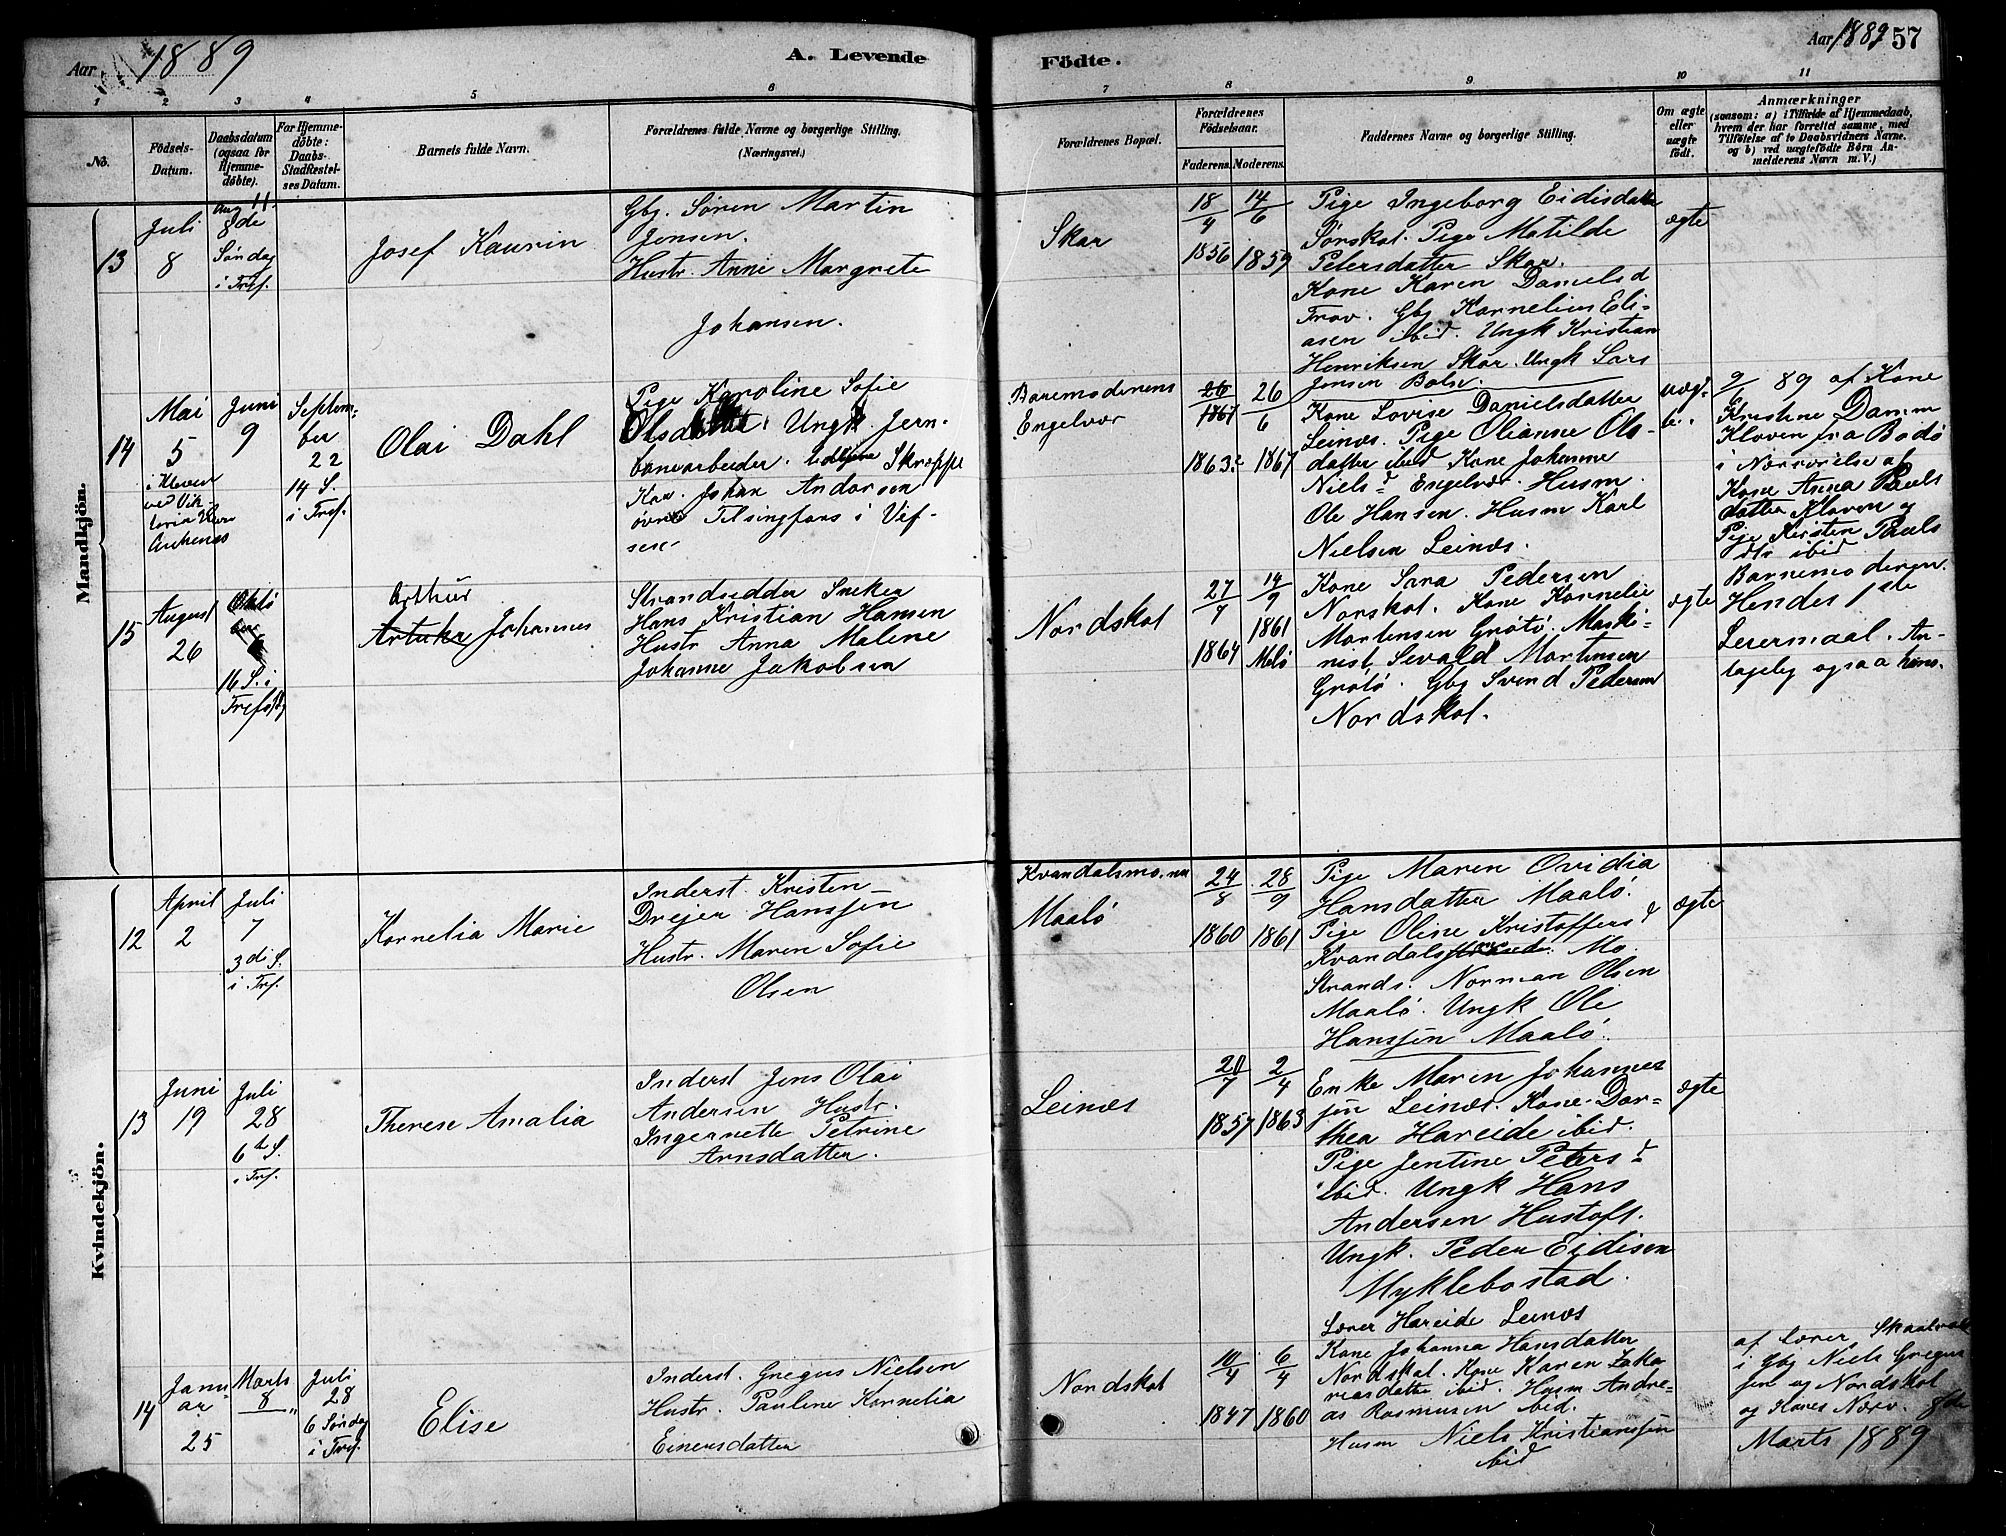 Aar 1889
A. Levende
Födte.
Aar 1889 57
1 2 3 4 5 6 7 8 9 10 11
No.
Födsels-
Datum.
Daabsdatum
(ogsaa for
Hjemme-
döbte).
For Hjemme-
döbte:
Daabs-
Stadfæstel-
ses Datum.
Barnets fulde Navn.
Forældrenes fulde Navne og borgerlige Stilling.
(Næringsvei.)
Forældrenes Bopæl.
Forældrenes
Födselsaar.
Faderens. Moderens.
Faddernes Navne og borgerlige Stilling.
Om ægte
eller
uægte
födt.
Anmærkninger
(saasom: a) i Tilfælde af Hjemmedaab,
hvem der har forrettet samme, med
Tilföielse af to Daabsvidners Navne,
og b) ved uægtefödte Börn An-
melderens Navn m. V.)
Mandkjön.
13
Juli
8
Aug 11.
8de
Søndag
i Tref.
Josef Kaurin
Gbg. Søren Martin
Jensen.
Hustr. Anne Margrete
Johansen.
Skar
18/4
1856
14/6
1859
Pige Ingeborg Eidisdatter
Pige Matilde
Petersdatter Skar.
Kone Karen Danielsd
Trov. Gbg Kornelius Eli-
asen ibid. Ungk Kristian
Henriksen Skar. Ungk Lars
Jensen Bolsv.
ægte
14
Mai
5
i Kloven
ved Vik-
toria Havn
Ankenes
Juni
9
Septem-
ber
22
14 S.
i Tref.
Olai Dahl
Pige Karoline Sofie
Olsdatter. Ungk. Jern-
banearbeider. Skroppe
Kar. Johan Andorsen
øvre Tilsingfors i Vef-
sen
Barnemoderens
Engelvær
26
1867
1863?
26
6
1867
Kone Lovise Danielsdatter
Leinæs. Pige Olianne Ols-
datter ibid Kone Johanne
Nielsd Engelvær. Husm.
Ole Hansen. Husm Karl
Nielsen Leinæs.
uægt-
te.
9/6 89 af Kone
Kristene Damm
Kloven fra Bodö
i Nærværelse af
Kone Anna Pauls
datter Kloven og
Pige Kirsten Pauls
dtr ibid
Barnemoderen.
Hendes 1ste
Leiermaal. An-
tagelig ogsaa hans.
15
August
26
Okto
ber
6
16 S. i
Tref.
Arthur
Artuka Johannes
Strandsidder Snekker
Hans Kristian Hansen
Hustr Anna Malene
Johanne Jakobsen
Nordskot
27/7
1864
14/9
1861
Melö
Kone Sara Pedersen
Norskot. Kone Kornelie
Martensen Grötö. Maski-
nist Sevald Mortensen
Grötö. Gbg Svend Pedersen
Nordskot.
ægte
Kvindekjön.
12
April
2
Juli
7
3di S.
i. Tref.
Kornelia Marie
Inderst. Kristen
Drejer Hanssen
Hustr. Maren Sofie
Olsen
Kvandalsmo. nu
Maalö
24/8
1860
28/9
1861
Pige Maren Ovidia
Hansdatter Maalö.
Pige Oline Kristoffersd
Mo.
Strands. Norman Olsen
Maalö. Ungk Ole
Hanssen Maalö.
ægte
13
Juni
19
Juli
28
6te S.
i. Tref.
Therese Amalia
Inderst Jens Olai
Andersen Hustr.
Ingernette Petrine
Arnsdatter.
Leinæs
20/7
1857
2/4
1863
Enke Maren Johannes
sen Leinæs. Kone Dor-
thea Hareide ibid.
Pige Jentine Petersd
ibid. Ungk Hans
Andersen Hustoft.
Ungk. Peder Eidisen
Myklebostad.
Lærer Hareide Leinæs
ægte
14
Janu
ar
25
Marts
8
Juli
28
6 Søndag
i Tref.
Elise
Inderst. Gregus Nielsen
Hustr. Pauline Kornelia
Einersdatter
Nordskot
10/4
1847
6/4
1860
Kone Johanna Hansdatter
Nordskot. Kone Karen Zaka-
riasdatter ibid. Husm Andre-
as Rasmusen ibid.
Husm Niels Kristianssen
ibid
af Lærer Skaalvold
i Gbg Niels Gregus
sen og Nordskot
og Kones Nærv. 8de
Marts 1889